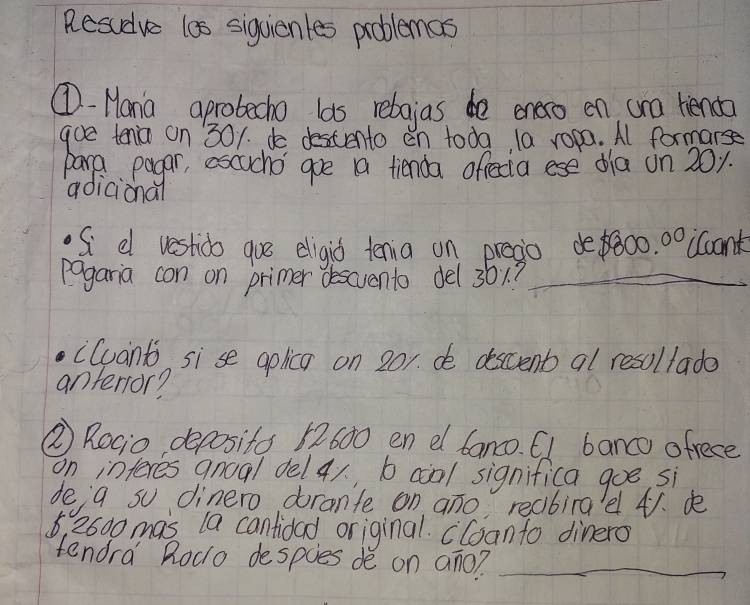 Resuelve las siguientes problemas
①- María aprobecho las rebajas de enero en una tienda
que tenia un 30% de descuento en toda la ropa. Al formarse
para pagar, escuchó que la tienda ofrecia ese día un 20%
adicional
• Si el vestido que eligió tenia un precio de $800.00 ¿Cuant
pagaria con un primer descuento del 30%?
• ¿Cuánto si se aplica un 20% de descuento al resultado
anterior?
② Rocio deposito $2600 en el banco. El banco ofrece
un interes anual del 4%, lo cual significa que si
deja su dinero durante un año, recibira el 4% de
$2600 mas la cantidad original. ¿Cuánto dinero
tendrá Rocio despues de un año?